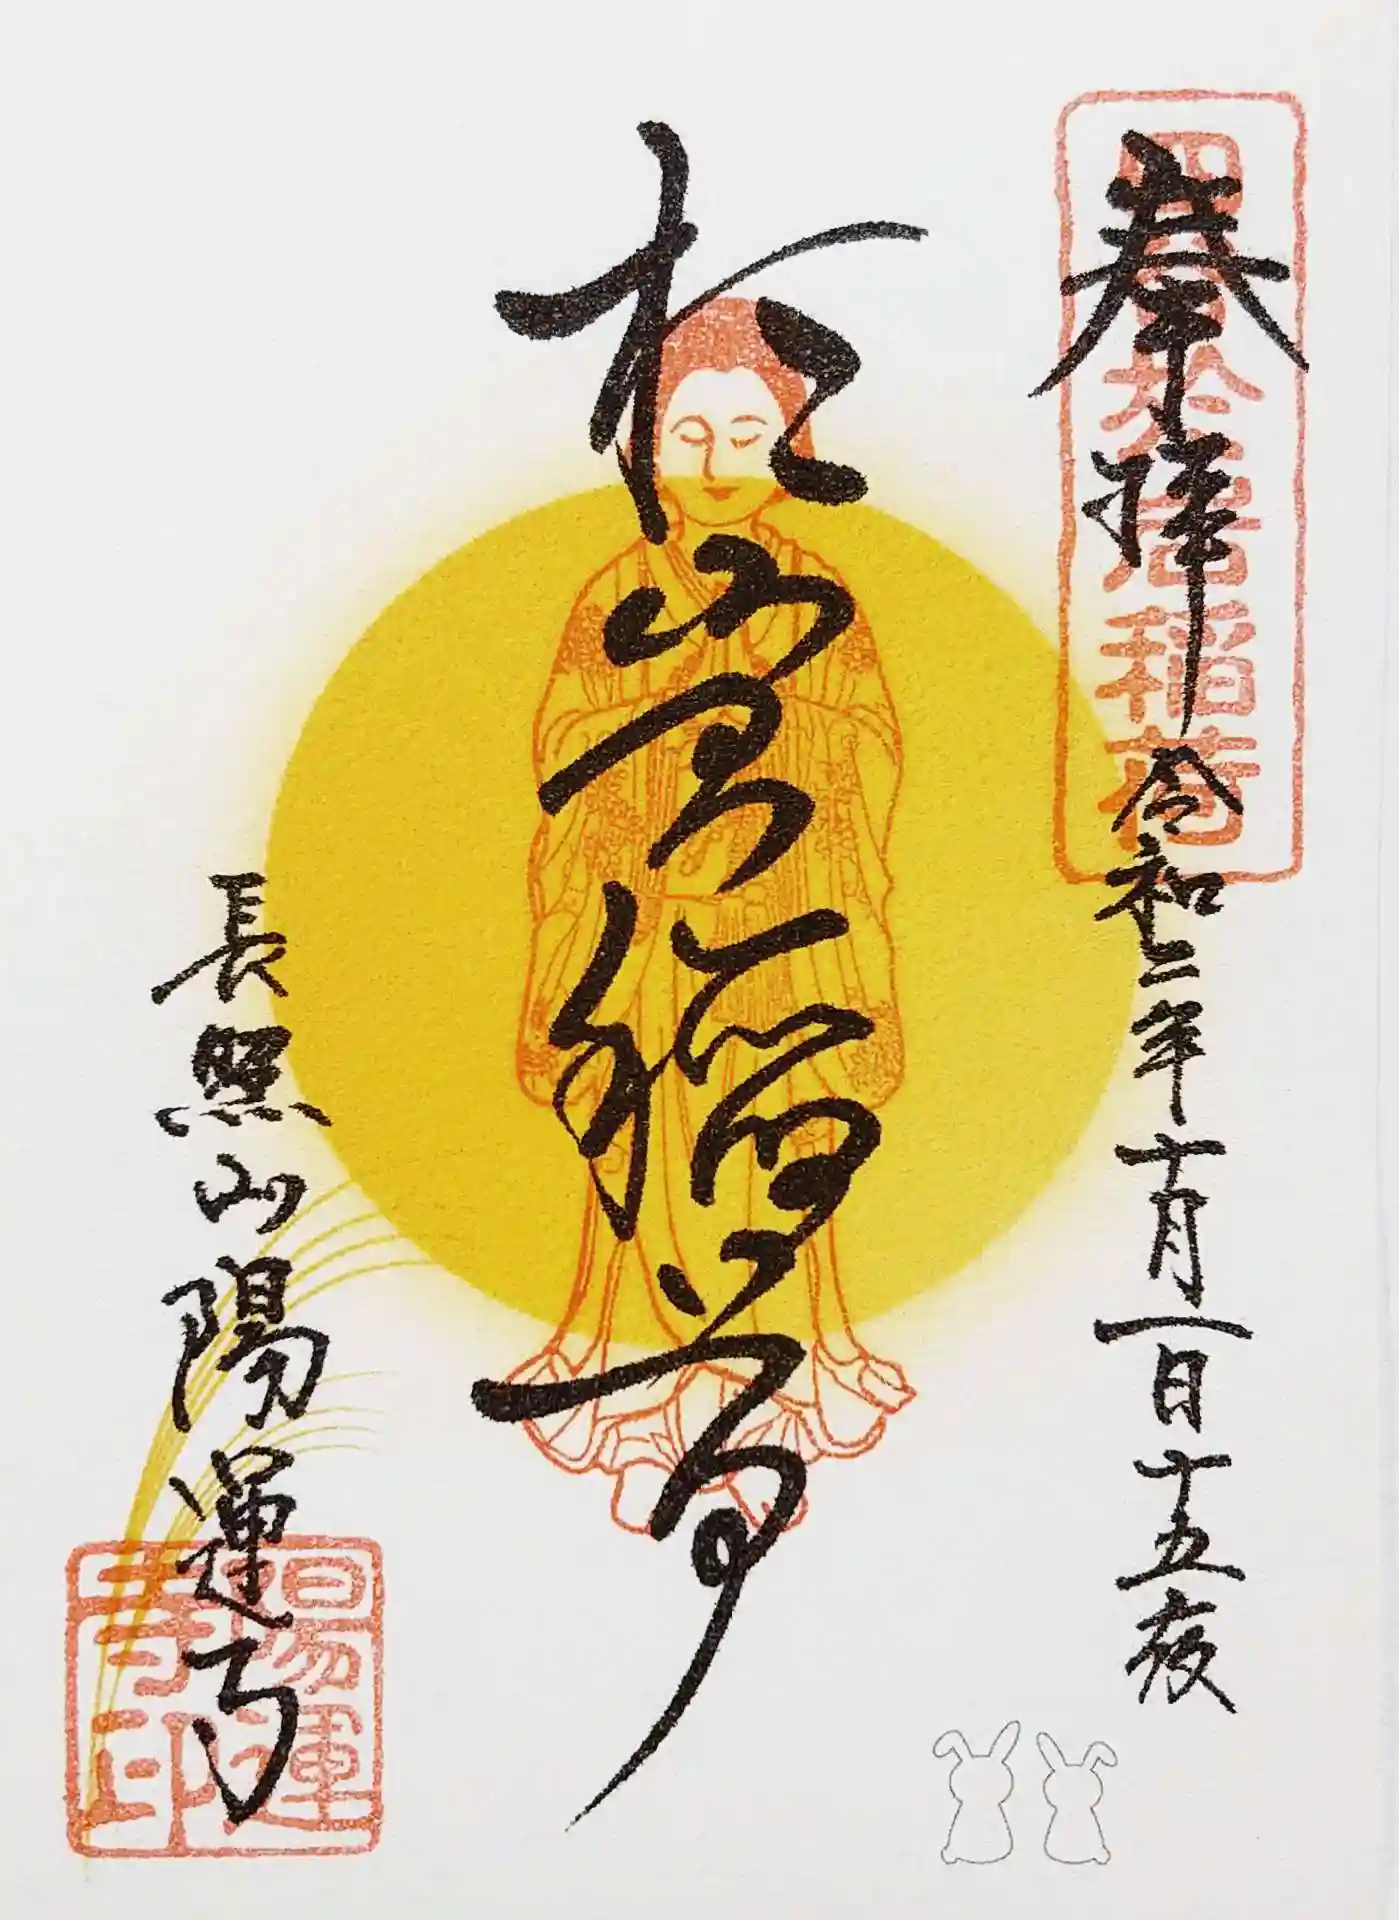 奉拝 令和二年十月一日十五夜
四谷於岩稲荷
於岩稲荷
長照山陽運寺
陽運
寺印